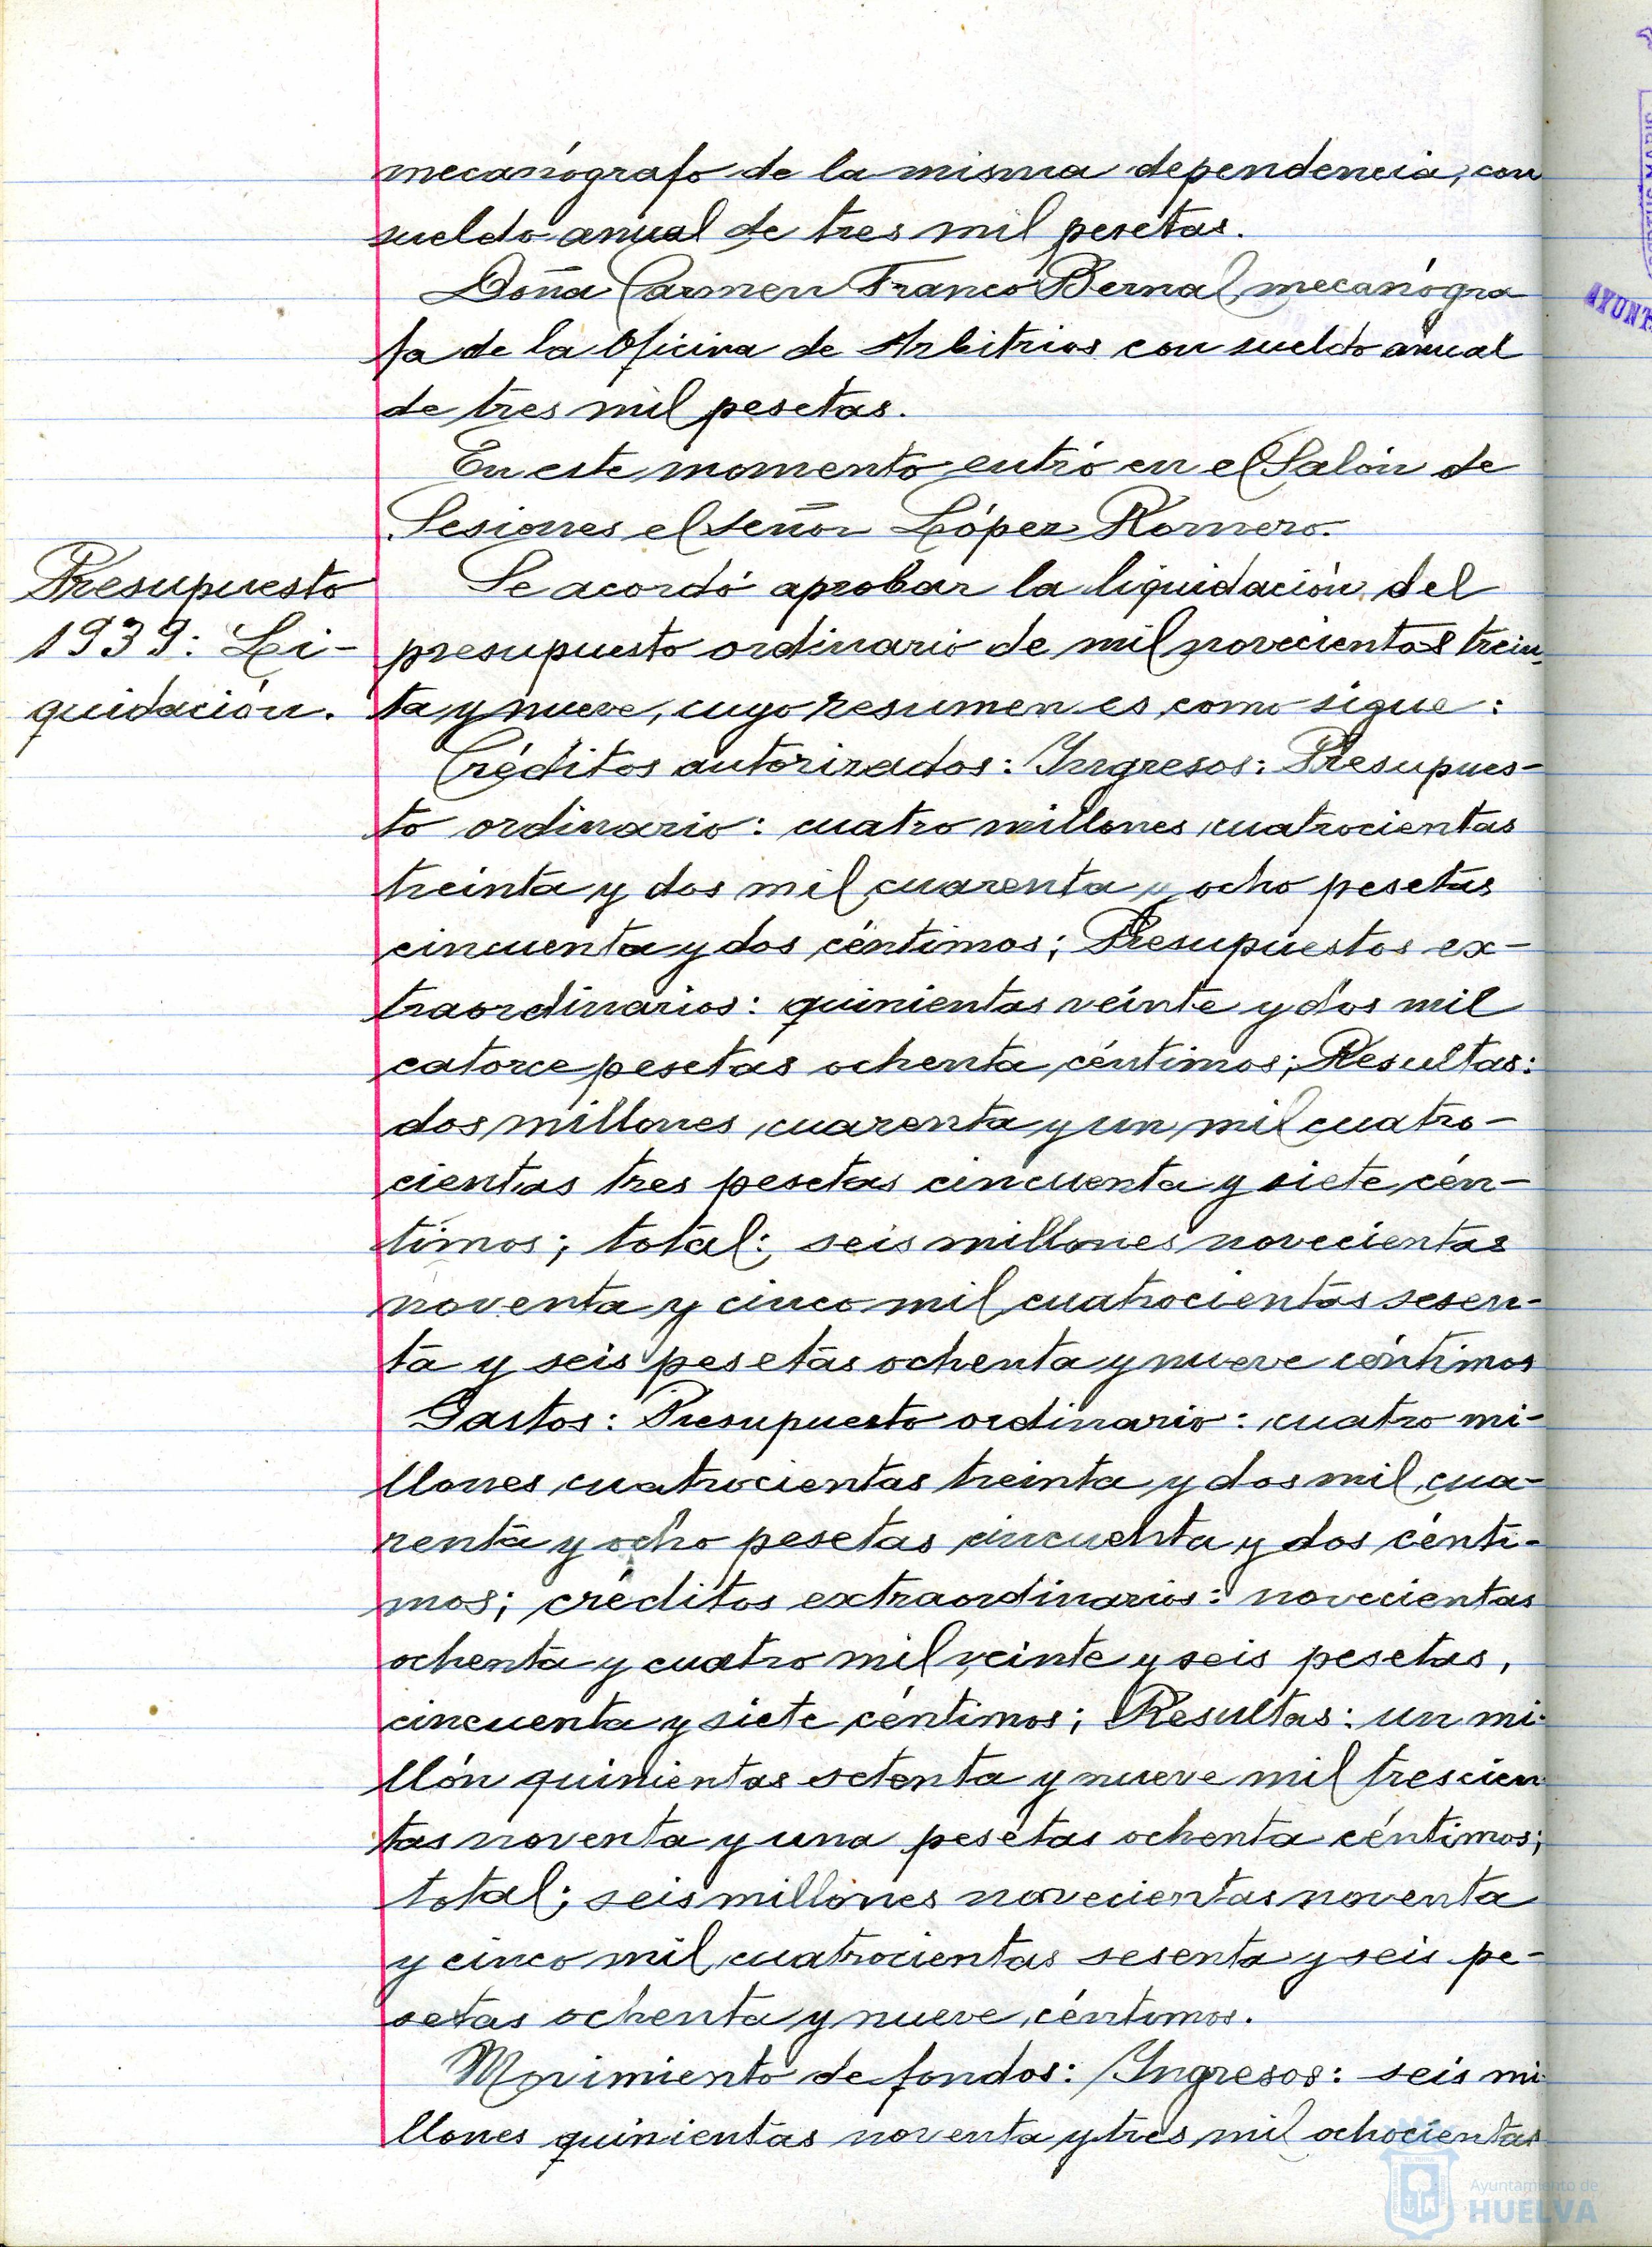 mecanógrafo de la misma dependencia, con
sueldo anual de tres mil pesetas.
Doña Carmen Franco Bernal, mecanógra
fa de la Oficina de Arbitrios con sueldo anual
de tres mil pesetas.
En este momento entró en el Salón de
Sesiones el señor López Romero.
Presupuesto
1939: Li-
quidación.
Se acordó aprobar la liquidación del
presupuesto ordinario de mil novecientos trein-
ta y nueve, cuyo resumen es como sigue:
Créditos autorizados: Ingresos: Presupues-
to ordinario: cuatro millones cuatrocientas
treinta y dos mil cuarenta y ocho pesetas
cincuenta y dos céntimos; Presupuestos ex-
traordinarios: quinientas veinte y dos mil
catorce pesetas ochenta céntimos; Resultas:
dos millones cuarenta y un mil cuatro-
cientas tres pesetas cincuenta y siete cén-
timos; total: seis millones novecientas
noventa y cinco mil cuatrocientas sesen-
ta y seis pesetas ochenta y nueve céntimos
Gastos: Presupuesto ordinario: cuatro mi-
llones cuatrocientas treinta y dos mil cua-
renta y ocho pesetas cincuenta y dos cénti-
mos; créditos extraordinarios: novecientas
ochenta y cuatro mil veinte y seis pesetas,
cincuenta y siete céntimos; Resultas: un mi-
llón quinientas setenta y nueve mil trescien
tas noventa y una pesetas ochenta céntimos;
total; seis millones novecientas noventa
y cinco mil cuatrocientas sesenta y seis pe-
setas ochenta y nueve céntimos.
Movimiento de fondos: Ingresos: seis mi-
llones quinientas noventa y tres mil ochocientas
Ayuntamiento de
HUELVA
AYUNT